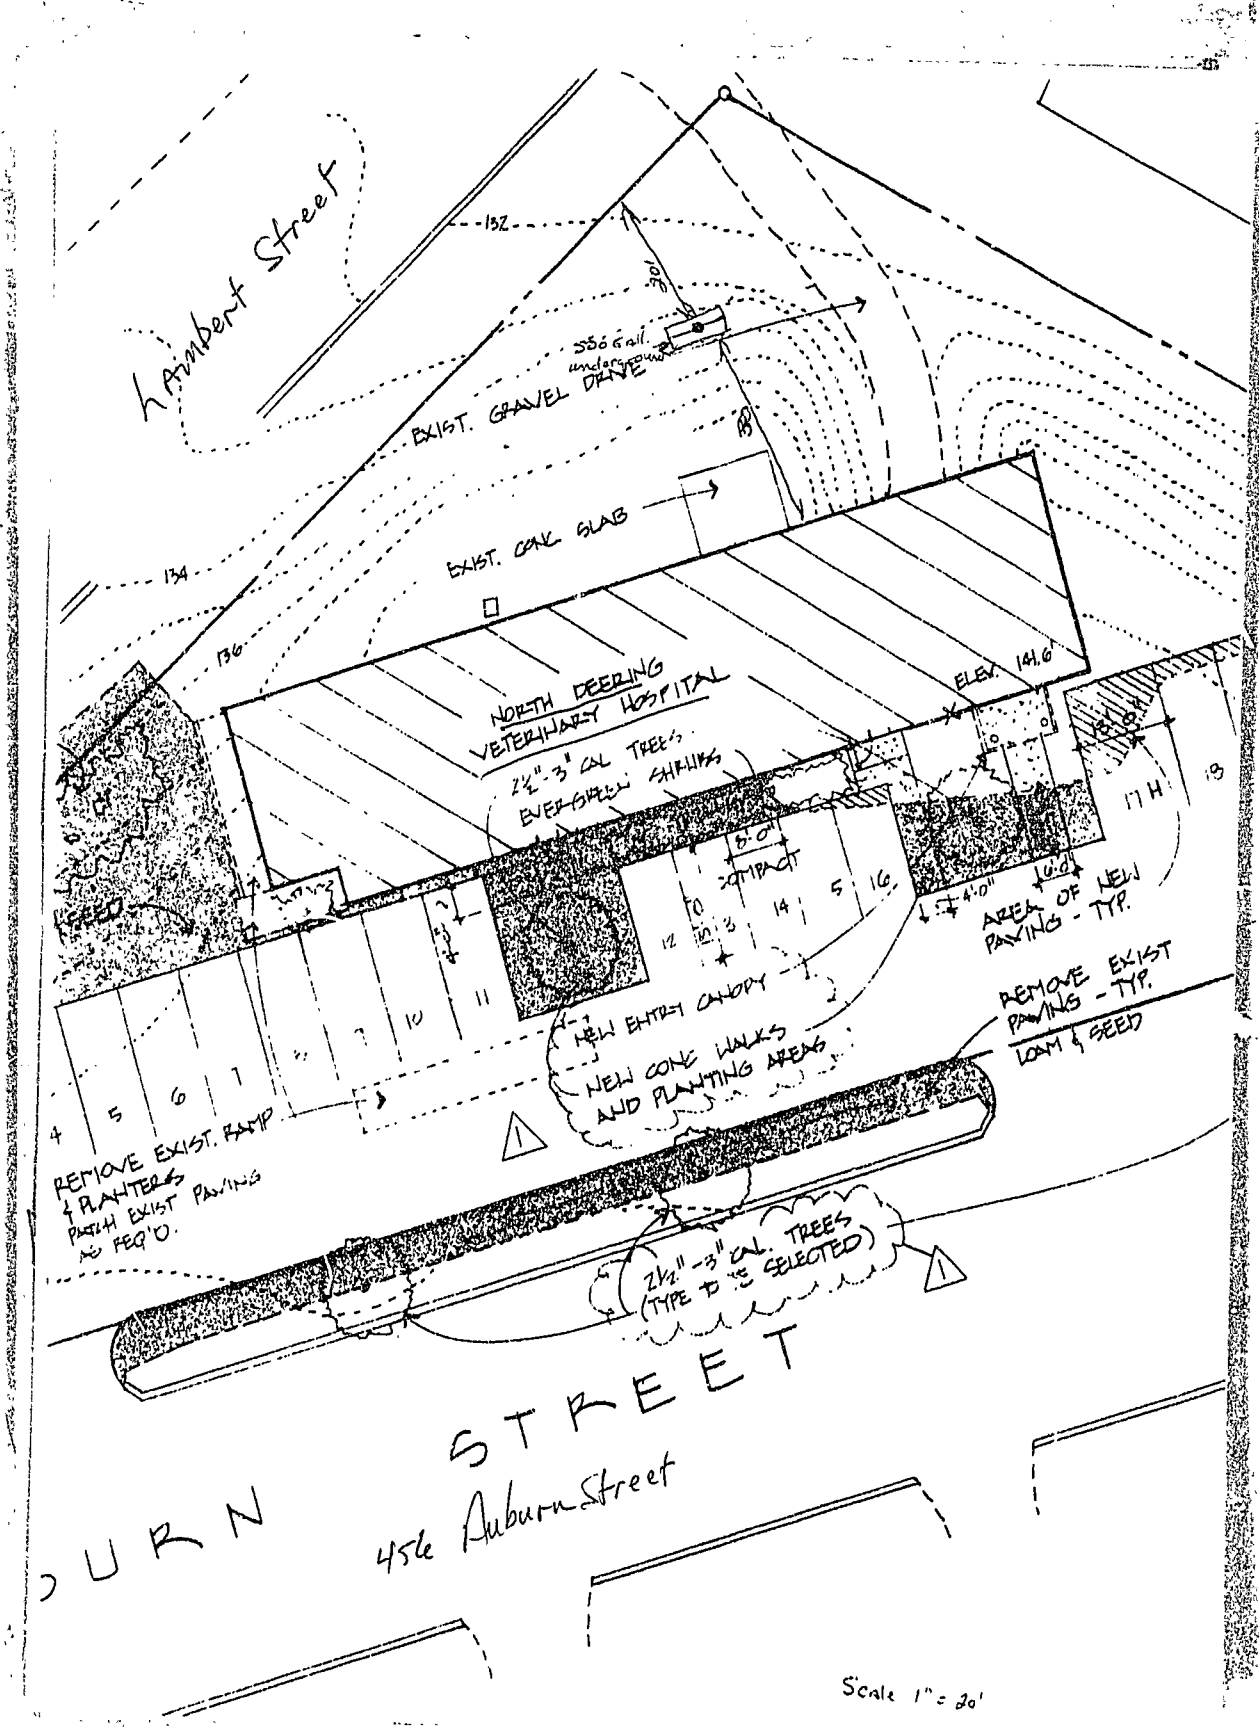 Lambert Street
132
20'
550 Gall.
underground
EXIST. GRAVEL DRIVE
EXIST. CONC SLAB
134
136
NORTH DEERING
VETERINARY HOSPITAL
ELEV. 141.6'
2½"-3" CAL TREES
EVERGREEN SHRUBS
8'-0"
COMPACT
17 H
18
12
13
14
5
16
4'-0"
6'-0"
AREA OF NEW
PAVING - TYP.
11
10
7
6
5
4
NEW ENTRY CANOPY
NEW CONC WALKS
AND PLANTING AREAS
REMOVE EXIST
PAVING - TYP.
LOAM & SEED
SEED
1
REMOVE EXIST. RAMP
& PLANTERS
PATCH EXIST PAVING
AS REQ'D.
2½"-3" CAL. TREES
(TYPE TO BE SELECTED)
1
URN STREET
456 Auburn Street
Scale 1" = 20'